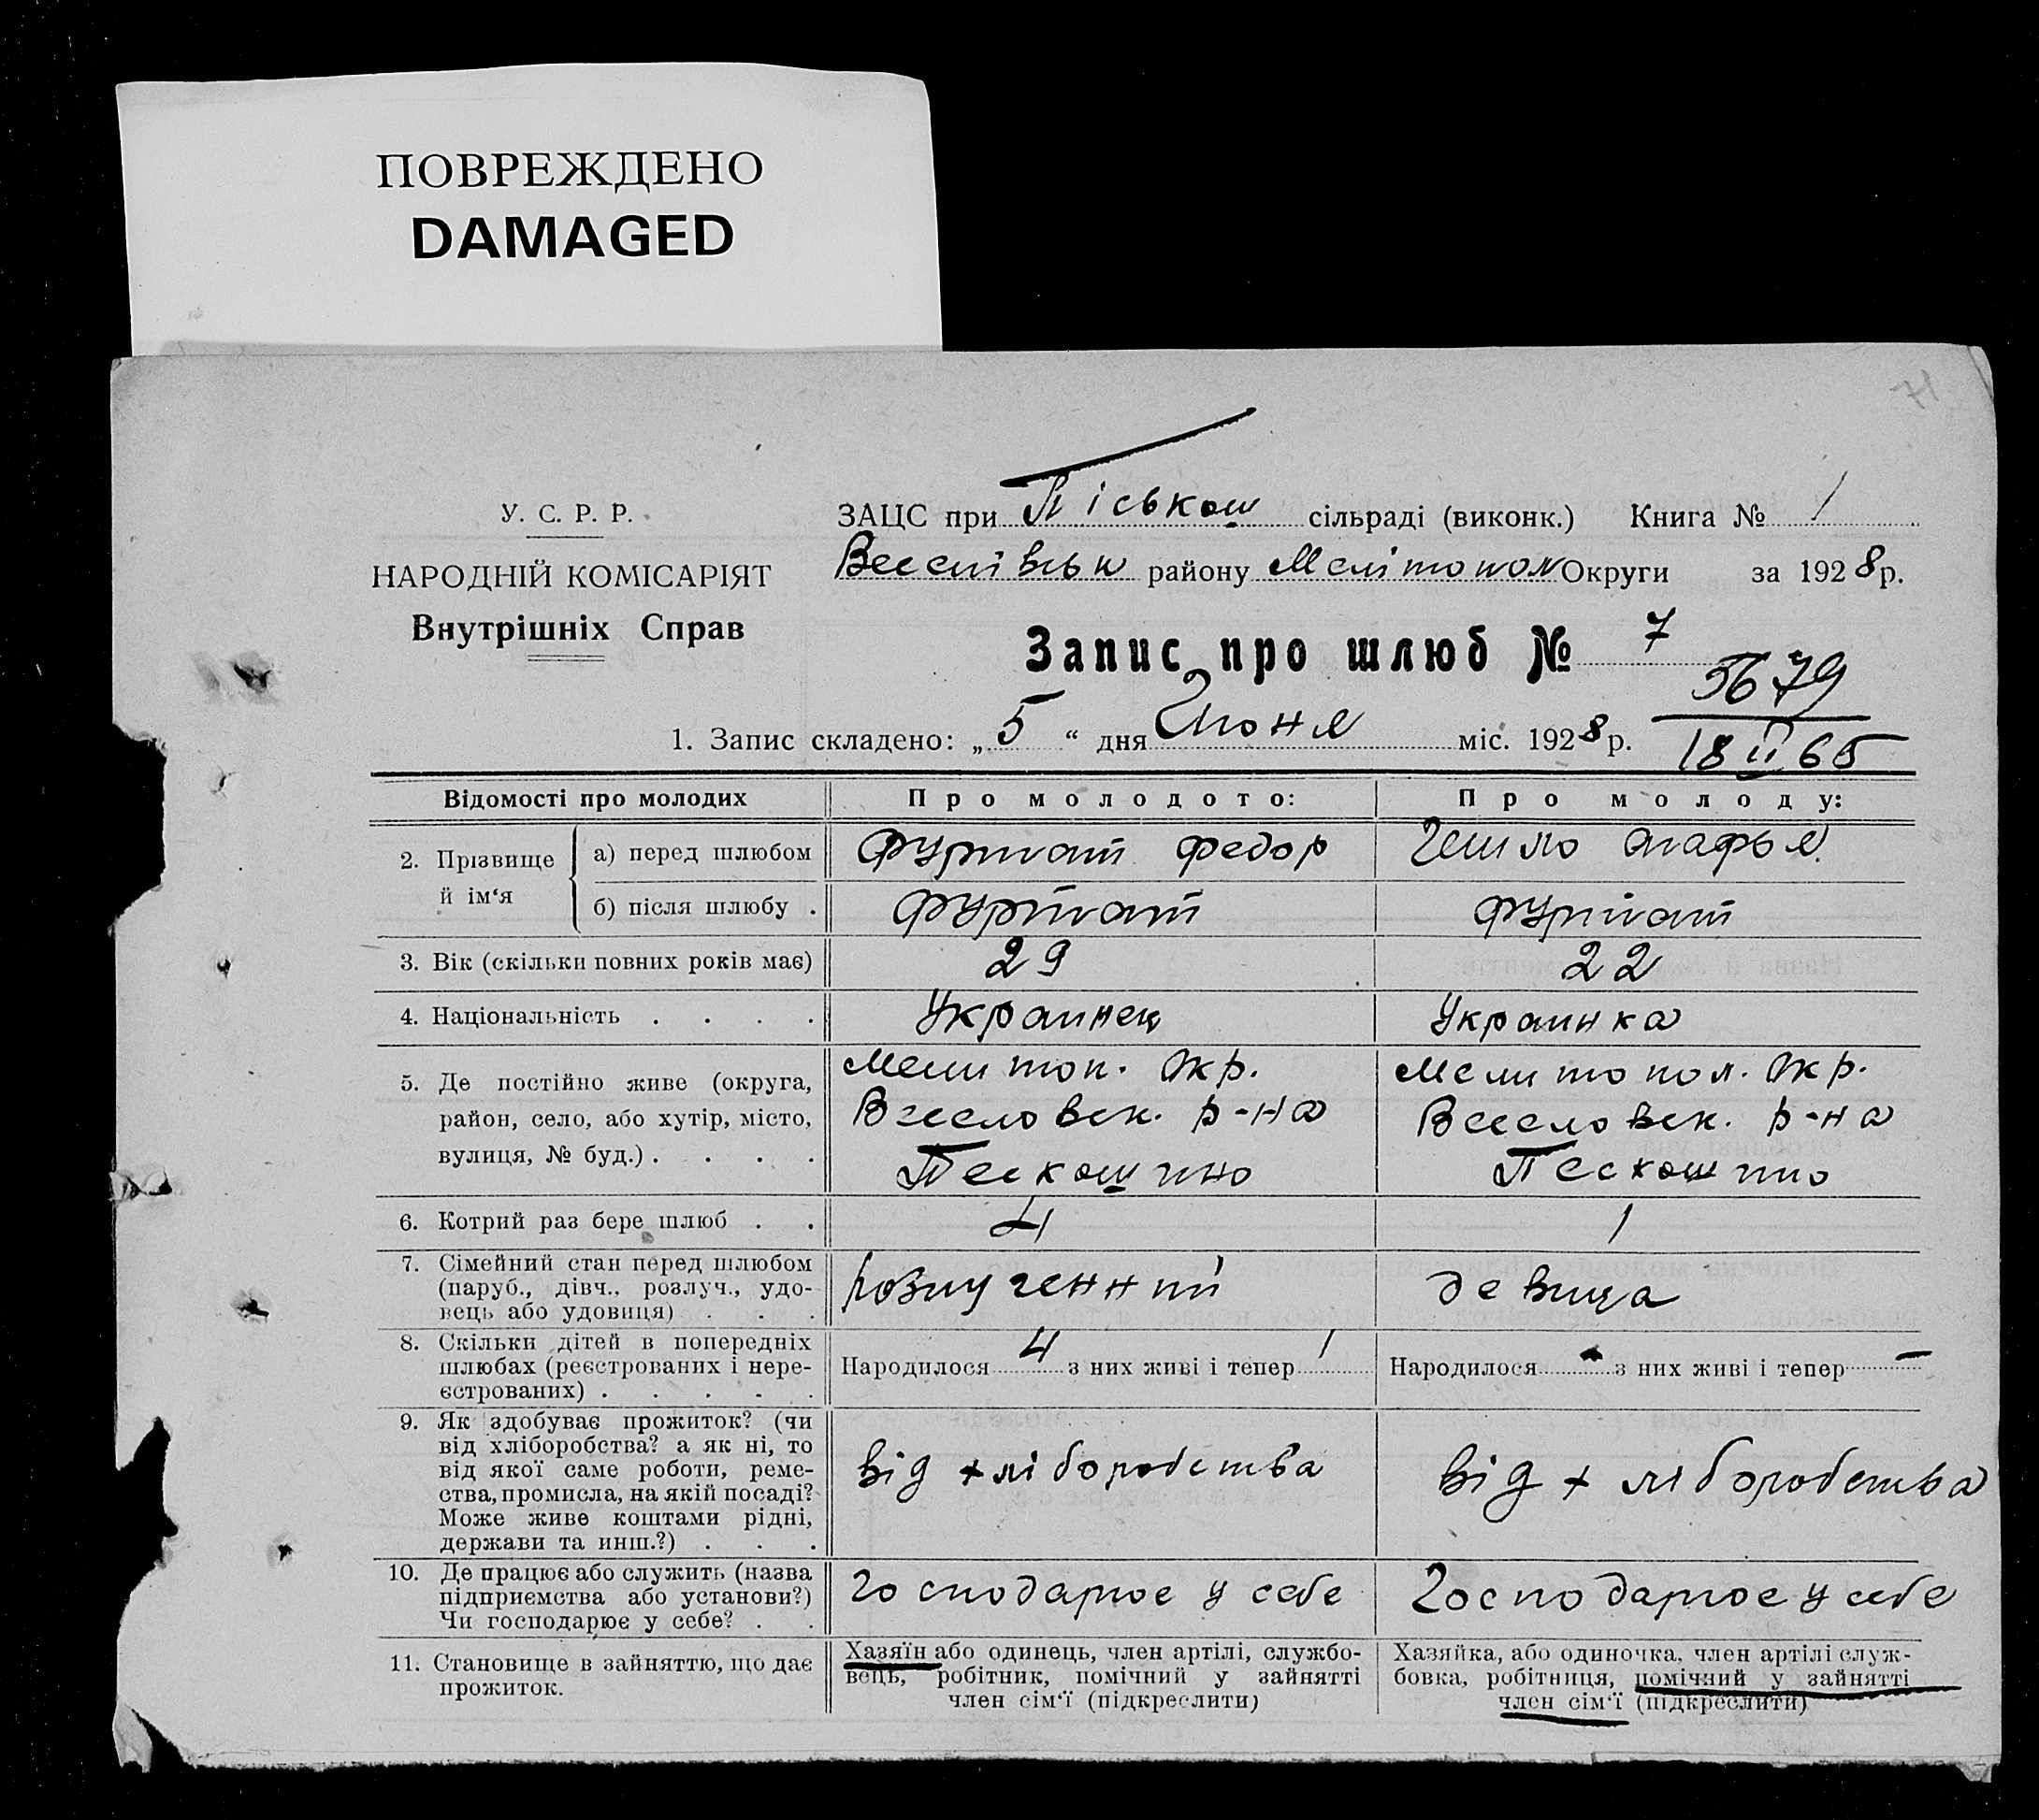 ПОВРЕЖДЕНО
DAMAGED
У. С. Р. Р.
НАРОДНІЙ КОМІСАРІЯТ
Внутрішніх Справ
ЗАЦС при Піськош сільраді (виконк.) Книга № 1
Веселівськ району Мелітопол Округи за 1928 р.
Запис про шлюб № 7
5679
1. Запис складено: „5“ дня Июня міс. 1928 р.
18 II 65
Відомості про молодих Про молодого: Про молоду:
2. Прізвище й ім‘я
а) перед шлюбом Федор Агафья
б) після шлюбу .
3. Вік (скільки повних років має) 29 22
4. Національність . . . . Украинец Украинка
5. Де постійно живе (округа, Мелитоп. Окр. Мелитопол. Окр.
район, село, або хутір, місто, Веселовск. р-на Веселовск. р-на
вулиця, № буд.) . . . . Пескошино Пескошино
6. Котрий раз бере шлюб . . 4 1
7. Сімейний стан перед шлюбом
(паруб., дівч., розлуч., удо- розлученний девица
вець або удовиця) . . .
8. Скільки дітей в попередніх
шлюбах (реєстрованих і нере- Народилося 4 з них живі і тепер 1 Народилося - з них живі і тепер -
єстрованих) . . . . .
9. Як здобуває прожиток? (чи
від хліборобства? а як ні, то
від якої саме роботи, реме- від хліборобства від хліборобства
ства, промисла, на якій посаді?
Може живе коштами рідні,
держави та инш.?) . . .
10. Де працює або служить (назва
підприємства або установи?) господарює у себе Господарює у себе
Чи господарює у себе? . .
11. Становище в зайняттю, що дає Хазяїн або одинець, член артілі, службо- Хазяйка, або одиночка, член артілі служ-
прожиток. вець, робітник, помічний у зайнятті бовка, робітниця, помічний у зайнятті
член сім‘ї (підкреслити) член сім‘ї (підкреслити)